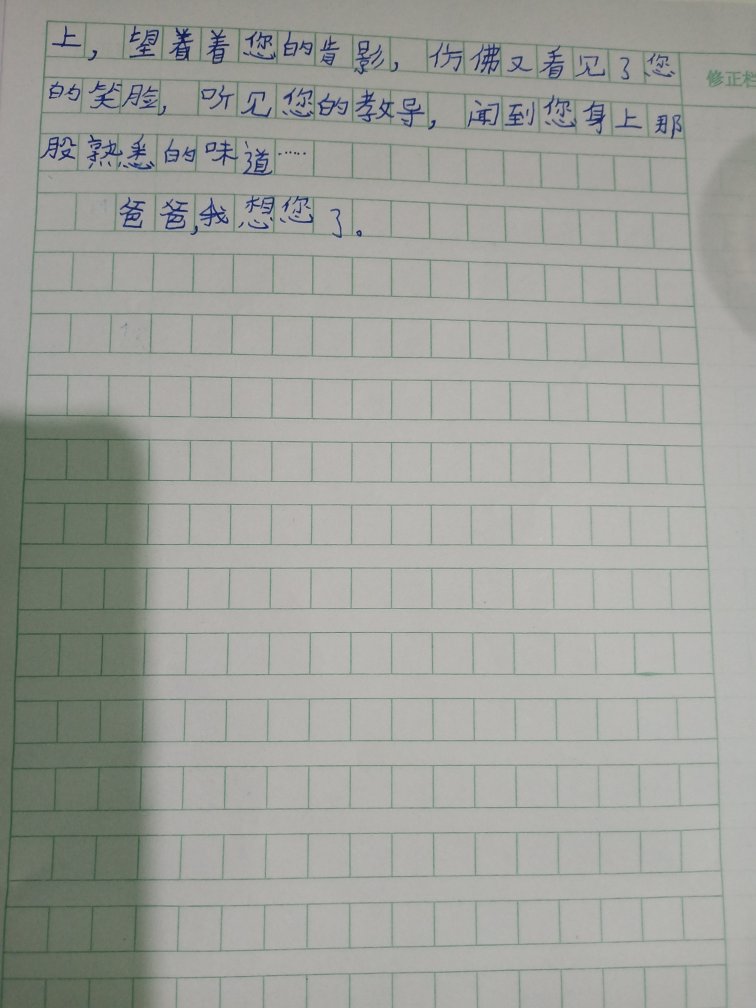 上，望着着您的背影，仿佛又看见了您
修正栏
的笑脸，听见您的教导，闻到您身上那
股熟悉的味道……
爸爸，我想您了。